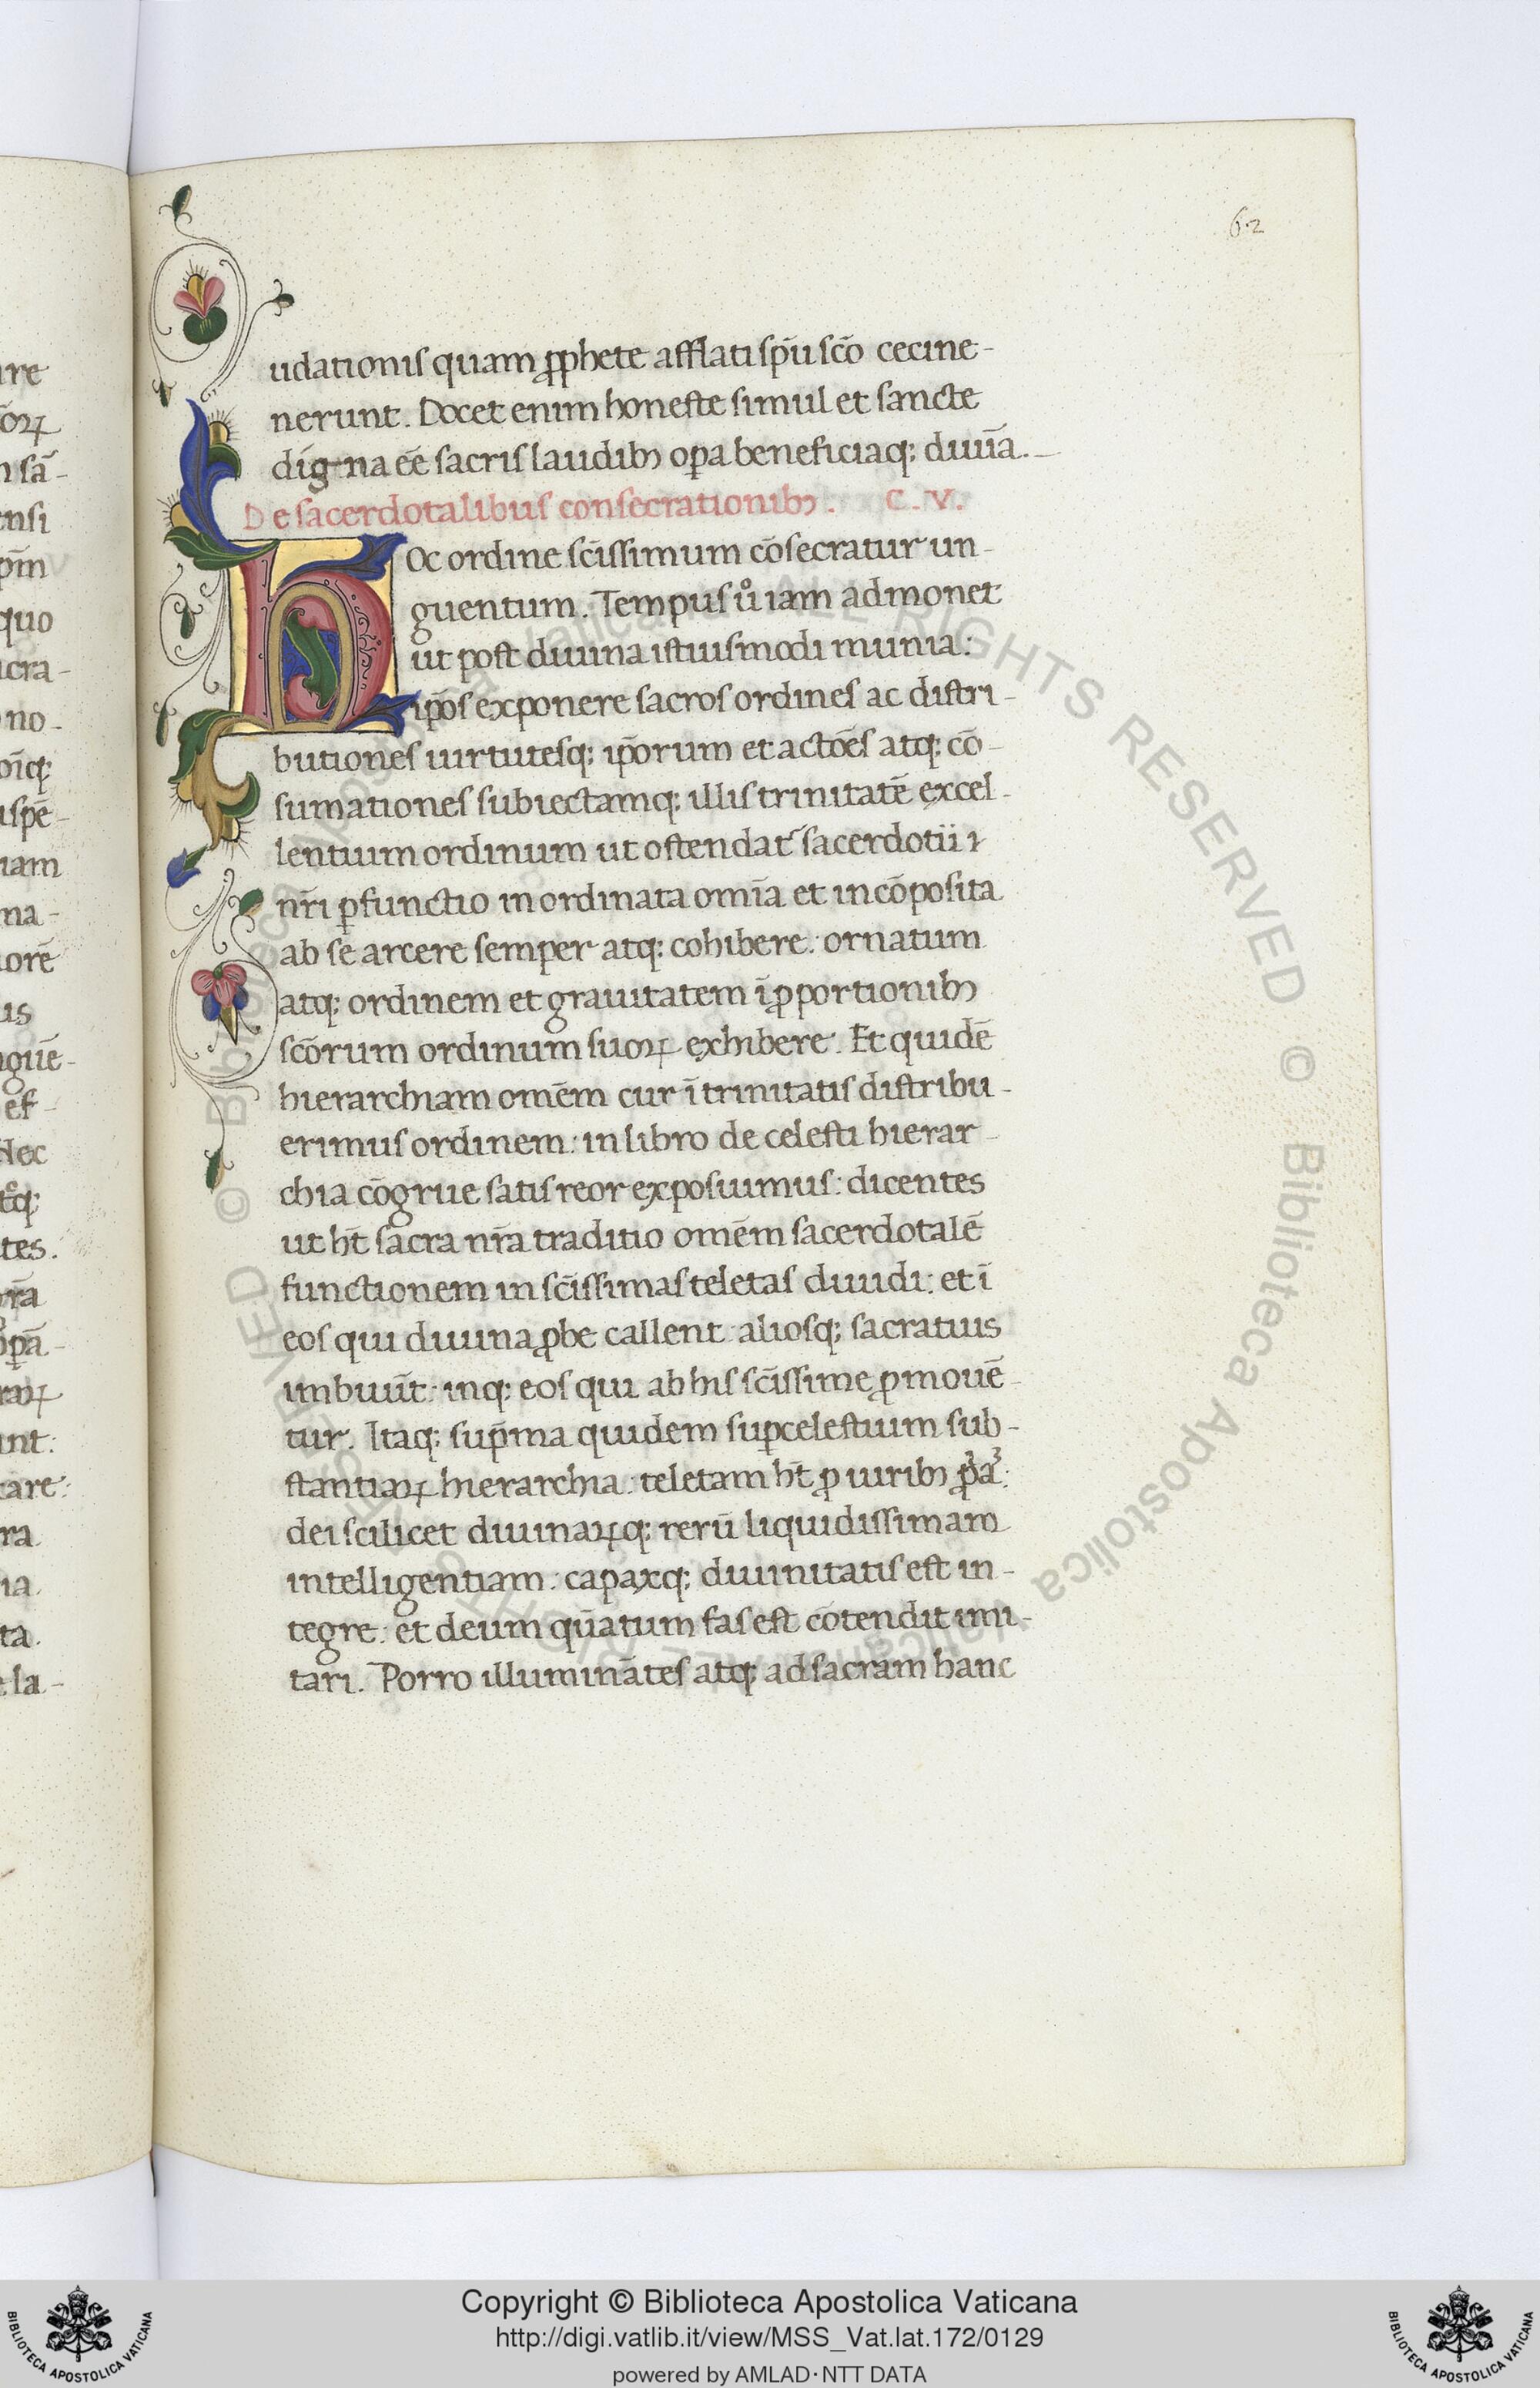 62
udationis quam ꝓphete afflati sp̄u scō cecine-
nerunt. Docet enim honeste simul et sancte
digna eē sacris laudibꝫ oꝑa beneficiaqꝫ diuīa.
De sacerdotalibus consecrationibꝫ. C. V.
hOc ordine scīssimum cōsecratur un-
guentum. Tempus uͦ iam admonet
ut post diuina istiusmodi munia:
ip̄os exponere sacros ordines ac distri-
butiones uirtutesqꝫ ip̄orum et actōēs atqꝫ cō-
sumationes subiectamqꝫ illis trinitatē excel-
lentium ordinum ut ostendat᷑ sacerdotii
nr̄i ꝑfunctio inordinata omīa et incōposita
ab se arcere semper atqꝫ cohibere: ornatum
atqꝫ ordinem et grauitatem ī ꝓportionibꝫ
scōrum ordinum suoꝝ exhibere. Et quidē
hierarchiam omēm cur ī trinitatis distribu-
erimus ordinem: in libro de celesti hierar-
chia cōgrue satis reor exposuimus: dicentes
ut ht̄ sacra nr̄a traditio omēm sacerdotalē
functionem in scīssimas teletas diuidi: et ī
eos qui diuina ꝓbe callent aliosqꝫ sacratius
imbuūt: inqꝫ eos qui ab his scīssime ꝓmouē-
tur. Itaqꝫ sup̄ma quidem suꝑcelestium sub-
stantiaꝝ hierarchia: teletam ht̄ ꝓ uiribꝫ
dei scilicet diuinaꝝqꝫ rerū liquidissimam
intelligentiam: capaxqꝫ diuinitatis est in-
tegre: et deum quātum fas est cōtendit imi-
tari. Porro illuminātes atqꝫ ad sacram hanc
Copyright © Biblioteca Apostolica Vaticana
http://digi.vatlib.it/view/MSS_Vat.lat.172/0129
powered by AMLAD·NTT DATA
BIBLIOTECA APOSTOLICA VATICANA
BIBLIOTECA APOSTOLICA VATICANA